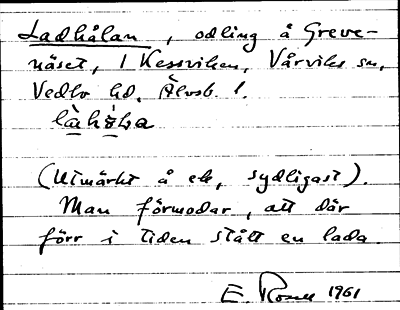 Ladhålan, odling å Greve-
näset, / Kessviken, Vårviks sn,
Vedbo hd. Älvsb. l.
(Utmärkt å ek, sydligast).
Man förmodar, att där
förr i tiden stått en lada.
E. 1961